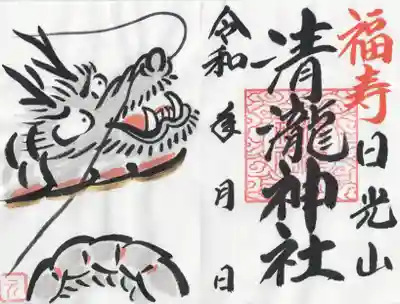 福寿
日光山
清瀧神社
令和 年 月 日